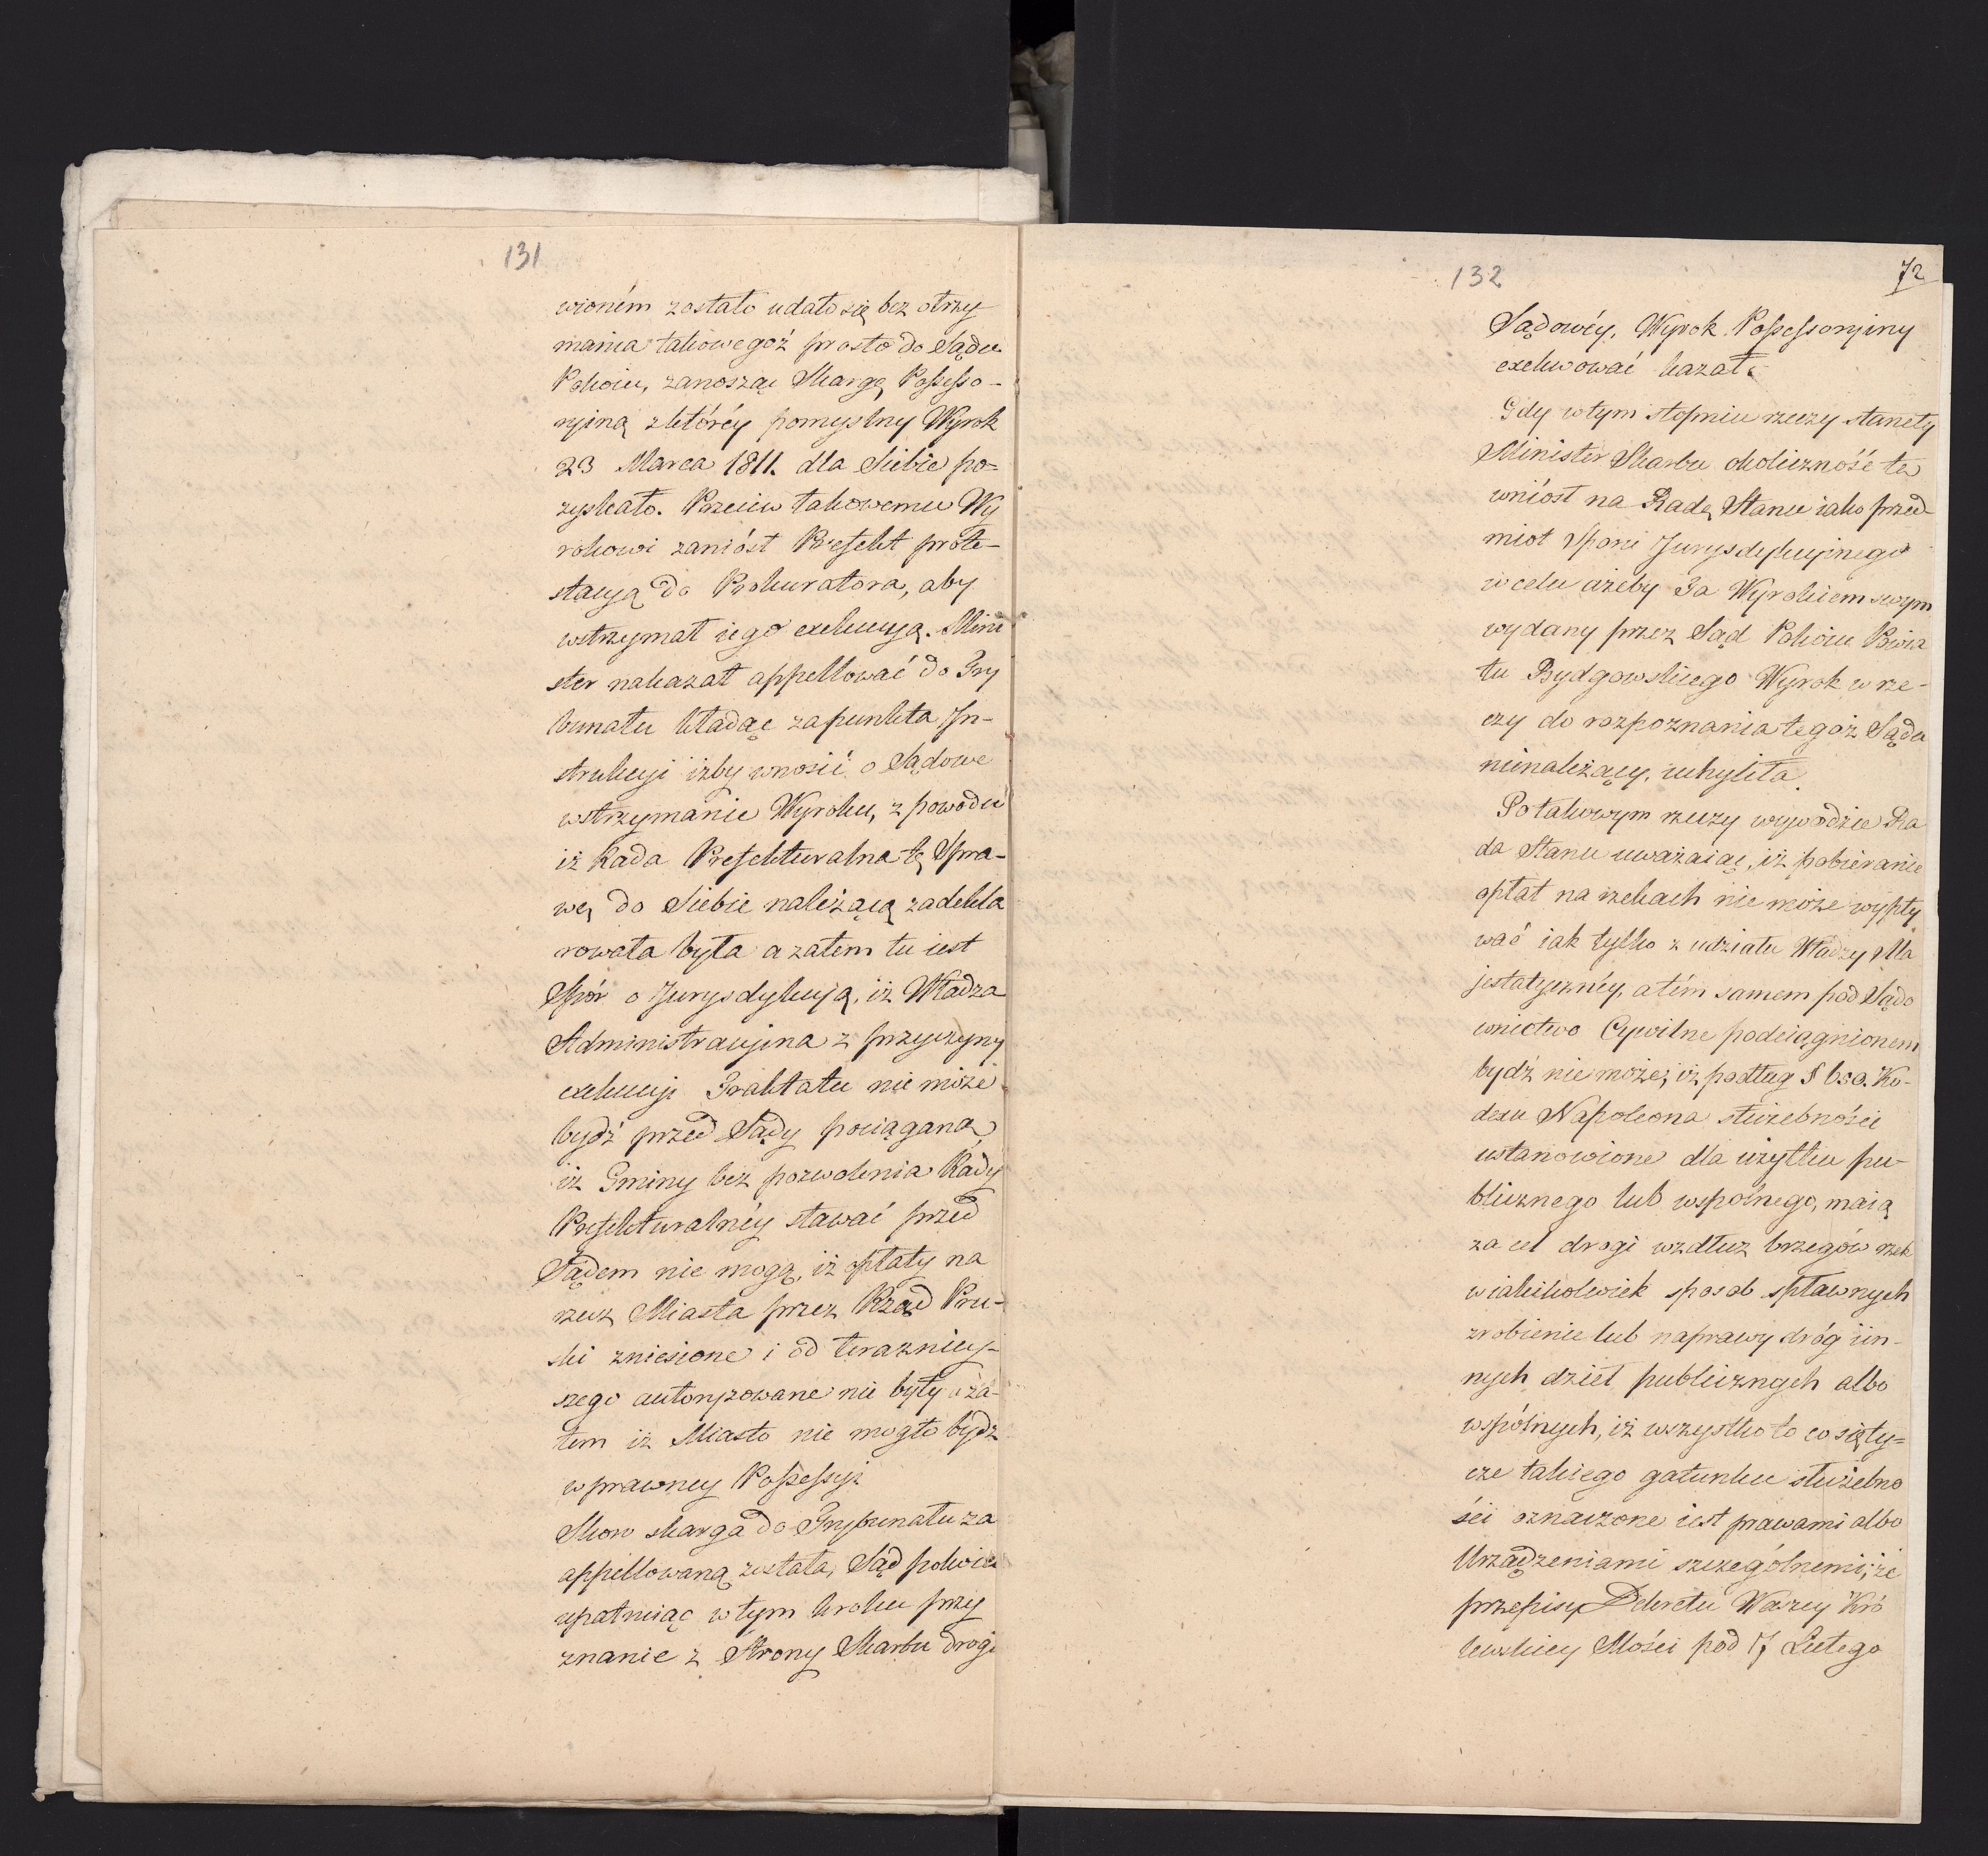 131
wioném zostało udało się bez otrzy
mania takowegoż prosto do Sądu
Pokoiu, zanosząc Skargę Possesso-
ryiną z któréy pomyślny Wyrok
23 Marca 1811. dla Siebie po=
zyskało. Przeciw takowemu Wy
rokowi zaniósł Prefekt prote-
stacyą do Prokuratora, aby
wstrzymał iego exekucyą. Mini
ster nakazał appellować do Try
bunału kładąc za punkta In-
strukcyi iżby wnosić o Sądowe
wstrzymanie Wyroku, z powodu
iż Rada Prefekturalna tę Spra-
wę do Siebie należącą zadekla
rowała była a zatem tu iest
Spór o Jurysdykcyą, iż Władza
Administracyina z przyczyny
exekucyi Traktatu nie może
bydź przed Sądy pociągana,
iż Gminy bez pozwolenia Rady
Prefekturalnéy stawać przed
Sądem nie mogą, iż opłaty na
rzecz Miasta przez Rząd Pru-
ski zniesione i od terazniey-
szego autoryzowane nie były a za-
tem iż Miasto nie mogło bydź
w prawney Possessyi
Skoro skarga do Trybunału za
appellowaną została, Sąd pokoiu
upatruiąc w tym kroku przy
znanie z Strony Skarbu drogi
132
72
Sądowéy, Wyrok Possessoryiny
exekwować kazał.
Gdy w tym stopniu rzeczy stanęły
Minister Skarbu okoliczność tę
wniósł na Radę Stanu iako przed-
miot Sporu Jurysdykcyinego
w celu ażeby Ta Wyrokiem swym
wydany przez Sąd Pokoiu Powia
tu Bydgowskiego Wyrok w rze-
czy do rozpoznania tegoż Sądu
nienależącey, uchyliła.
Po takowym rzeczy wywodzie Ra
da Stanu uważaiąc, iż pobieranie
opłat na rzekach nie może wypły
wać iak tylko z udziału Władzy Ma
jestatycznéy, a tém samem pod Sądo
wnictwo Cywilne podciągnionem
bydź nie może; iż podług § 650. Ko-
dexu Napoleona służebności
ustanowione dla użytku pu-
blicznego lub wspolnego, maią
za cel drogi wzdłuż brzegów rzek
w iakikolwiek sposob spławnych
zrobienie lub naprawy dróg i in-
nych dzieł publicznych albo
wspólnych, iż wszystko to co się ty=
cze takiego gatunku służebno
ści oznaczone iest prawami albo
Urządzeniami szczególnemi; że
przepisy Dekretu Waszey Kró
lewskiey Mości pod 17 Lutego